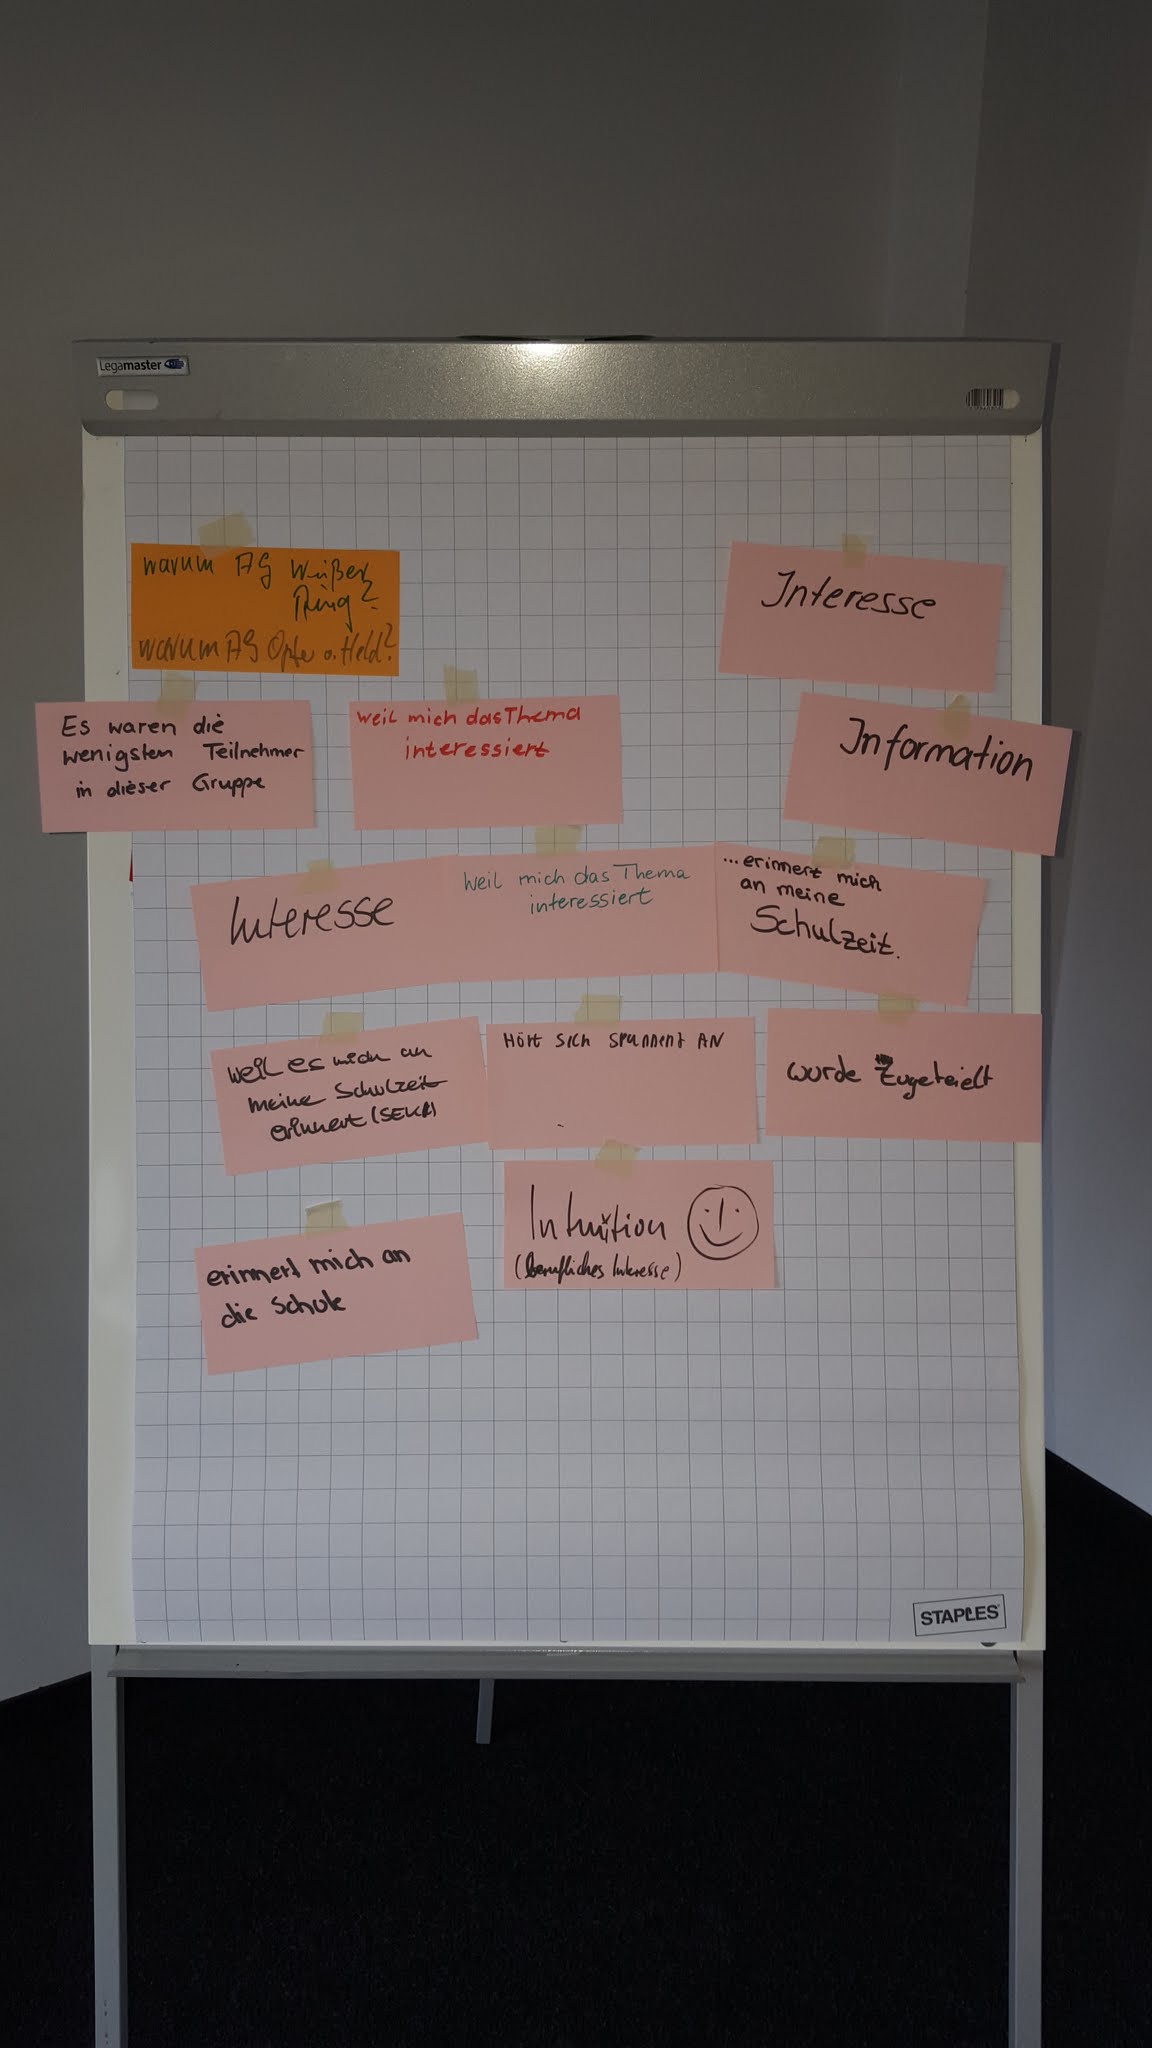 Legamaster
warum AG Weißer
Ring?
warum AG Opfer o. Held?
Interesse
Es waren die
wenigsten Teilnehmer
in dieser Gruppe
weil mich das Thema
interessiert
Information
Interesse
Weil mich das Thema
interessiert
...erinnert mich
an meine
Schulzeit.
weil es mich an
meine Schulzeit
erinnert (SEK I)
Hört sich spannent an
wurde Zugeteielt
Intuition
(berufliches Interesse)
erinnert mich an
die Schule
STAPLES